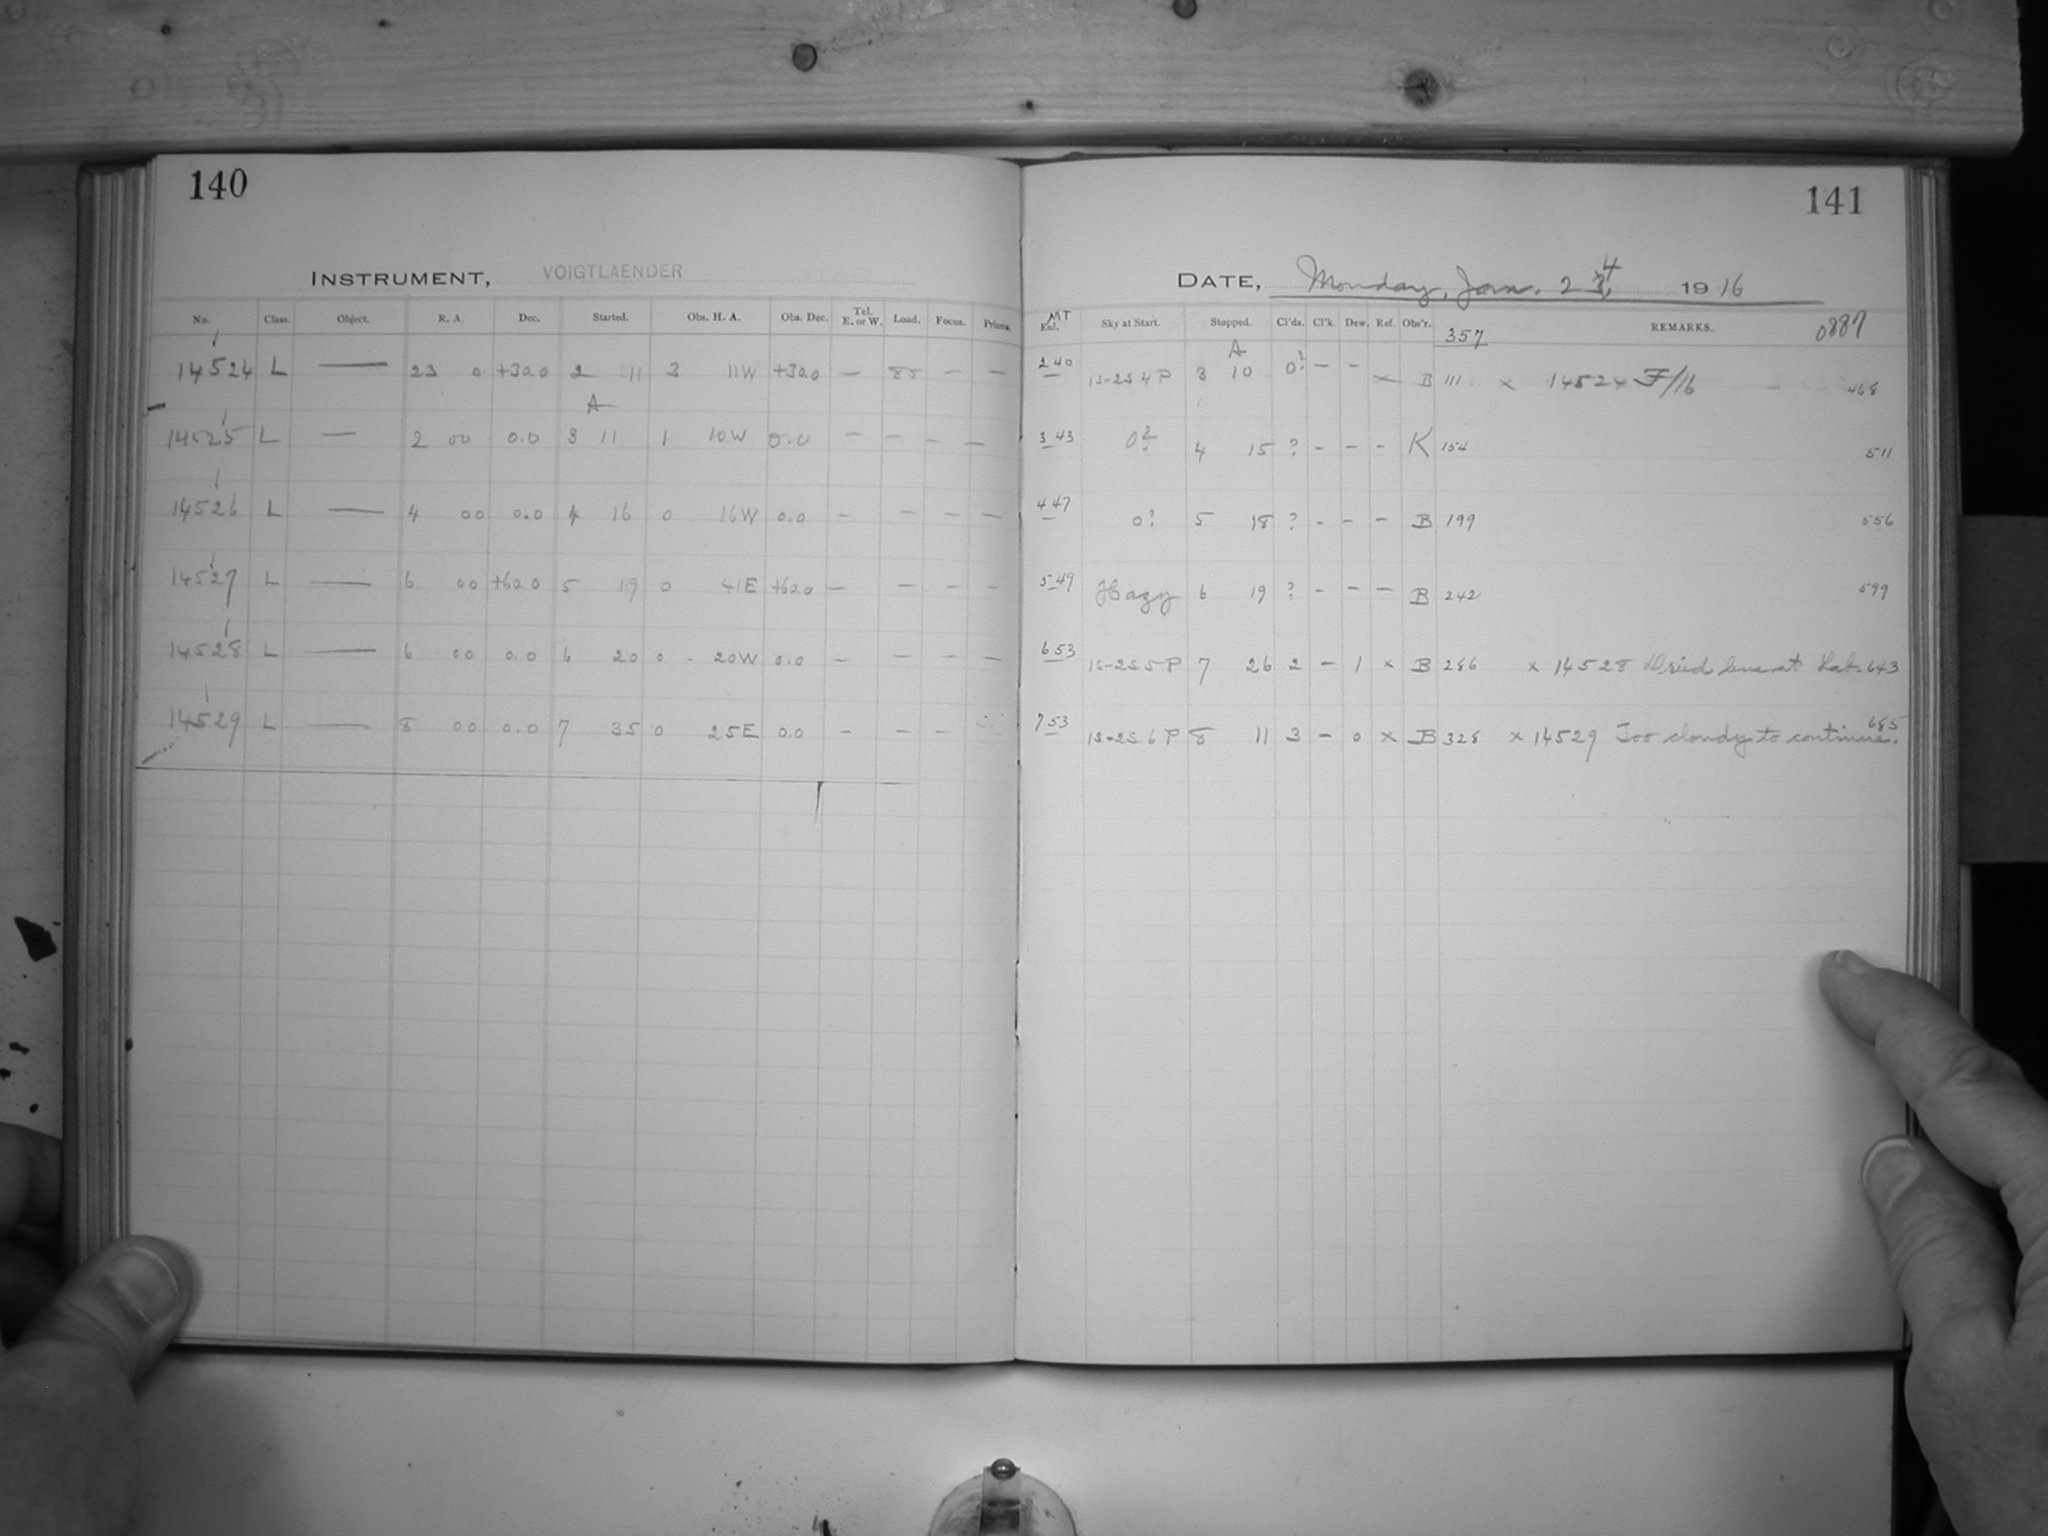 140
INSTRUMENT, VOIGTLAENDER
No. Class. Object. R. A. Dec. Started. Obs. H. A. Obs. Dec. Tel. E. or W. Load. Focus. Prisms.
14524 L — 23 0 +30.0 2 11 3 11W +30.0 — 85 — —
A
14525 L — 2 00 0.0 3 11 1 10W 0.0 — — — —
14526 L — 4 00 0.0 4 16 0 16W 0.0 — — — —
14527 L — 6 00 +60.0 5 19 0 41E +60.0 — — — —
14528 L — 6 00 0.0 6 20 0 - 20W 0.0 — — — —
14529 L — 8 00 0.0 7 35 0 25E 0.0 — — —
141
DATE, Monday, Jan. 24, 1916
MT
Ent. Sky at Start. Stopped. Cl'ds. Cl'k. Dew. Ref. Obs'r. 357 REMARKS. 0887
A
2 40 1S-2S 4 P 3 10 0? — — × B 111 × 14524 F/16 — 468
3 43 0? 4 15 ? - - - K 154 511
4 47 0? 5 18 ? - - - B 199 556
5 49 Hazy 6 19 ? - - - B 242 599
6 53 1S-2S 5 P 7 26 2 - 1 × B 286 × 14528 Dried lens at Lab. 643
7 53 1S-2S 6 P 8 11 3 - 0 × B 328 × 14529 Too cloudy to continue. 685